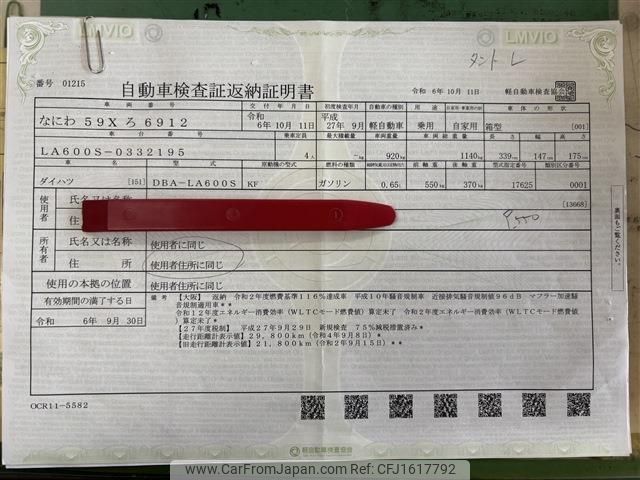 LMVIO
LMVIO
タント L
番号 01215
自動車検査証返納証明書
令和 6年 10月 11日
軽自動車検査協会
車両番号
交付年月日
初度検査年月
自動車の種別
用途
自家用・事業用の別
車体の形状
なにわ 59Xろ6912
令和
6年 10月 11日
平成
27年 9月
軽自動車
乗用
自家用
箱型
[001]
車台番号
乗車定員
最大積載量
車両重量
車両総重量
長さ
幅
高さ
LA600S-0332195
4人
-kg
920kg
1140kg
339cm
147cm
175cm
車名
型式
原動機の型式
燃料の種類
前軸重
後軸重
型式指定番号
類別区分番号
ダイハツ
[151]
DBA-LA600S
KF
ガソリン
0.65L
550kg
370kg
17625
0001
使用者
氏名又は名
住
[13668]
裏面もご覧ください。
所有者
氏名又は名称
使用者に同じ
住所
使用者住所に同じ
使用の本拠の位置
使用者住所に同じ
有効期間の満了する日
令和 6年 9月 30日
備考
【大阪】 返納 令和2年度燃費基準116%達成車 平成10年騒音規制車 近接排気騒音規制値96dB マフラー加速騒
音規制適用車**
令和12年度エネルギー消費効率(WLTCモード燃費値)算定未了 令和2年度エネルギー消費効率(WLTCモード燃費値
)算定未了*
【27年度税制】 平成27年9月29日 新規検査 75%減税措置済み*
【走行距離計表示値】29,800km(令和4年9月8日)*
【旧走行距離計表示値】21,800km(令和2年9月15日)**
OCR11-5582
軽自動車検査協会
www.CarFromJapan.com - CFJ1617792